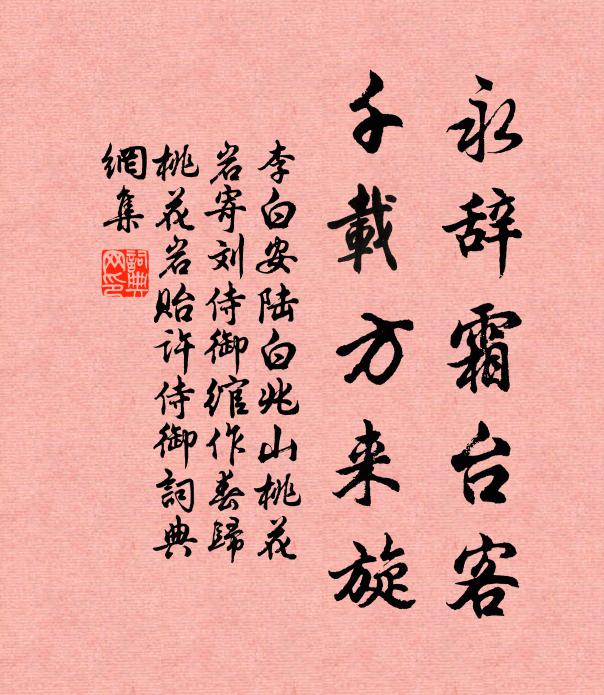 永辞霜台客
千載方来旋
李白安陆白兆山桃花
岩寄刘侍御绾作春歸
桃花岩贻许侍御詞典
網集
詞典
网印